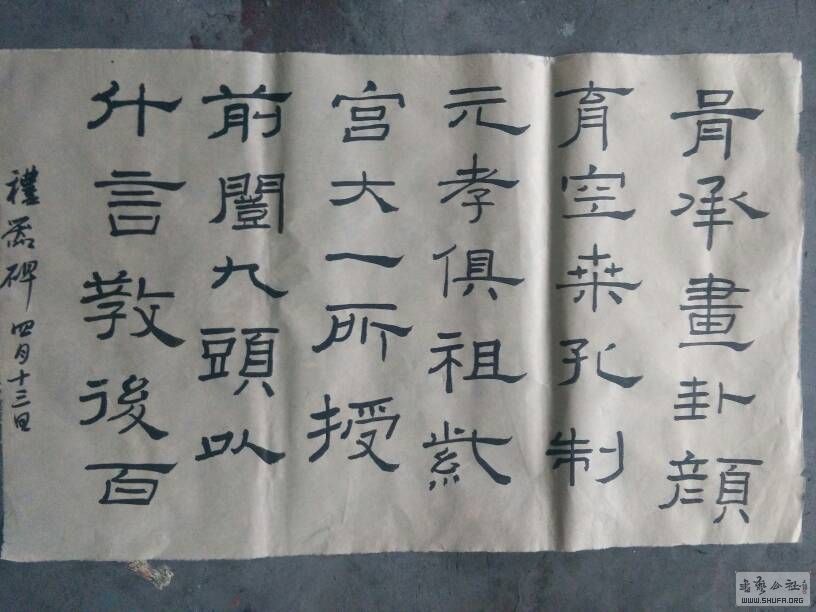 胥承畫卦顏
育空桒孔制
元孝俱祖紫
宮大一所授
前闓九頭以
什言教後百
禮器碑 四月十三日
书艺公社
WWW.SHUFA.ORG